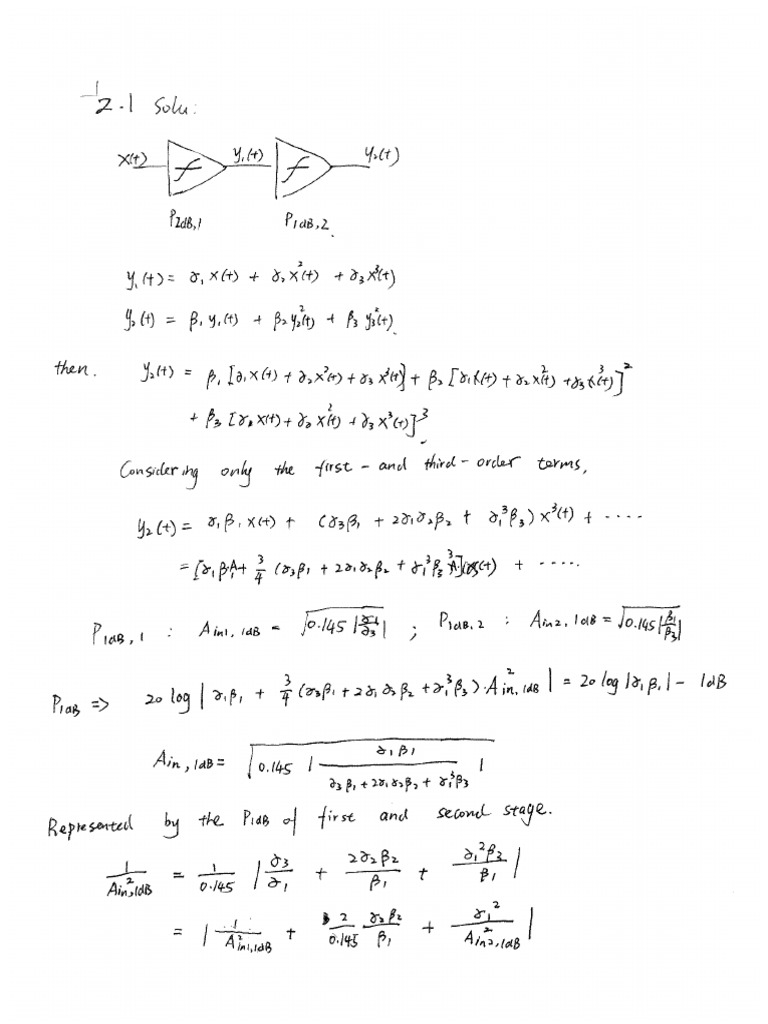 2.1 Solu:
x(t) y₁(t) y₂(t)
P2dB,1 P1dB,2.
y₁(t) = α₁ x(t) + α₂ x²(t) + α₃ x³(t)
y₂(t) = β₁ y₁(t) + β₂ y₂²(t) + β₃ y₃²(t).
then. y₂(t) = β₁ [α₁ x(t) + α₂ x²(t) + α₃ x³(t)] + β₂ [α₁ x(t) + α₂ x²(t) + α₃ x³(t)]²
+ β₃ [α₁ x(t) + α₂ x²(t) + α₃ x³(t)]³.
Considering only the first - and third - order terms,
y₂(t) = α₁ β₁ x(t) + (α₃β₁ + 2α₁α₂β₂ + α₁³β₃) x³(t) + ....
= [α₁ β₁A + 3/4 (α₃β₁ + 2α₁α₂β₂ + α₁³β₃)A³] cos(t) + .....
P1dB,1 : Ain1,1dB = √(0.145 |α₁/α₃|) ; P1dB,2 : Ain2,1dB = √(0.145 |β₁/β₃|)
P1dB => 20 log | α₁β₁ + 3/4 (α₃β₁ + 2α₁α₂β₂ + α₁³β₃)·A²in,1dB | = 20 log |α₁β₁| - 1dB
Ain,1dB = √(0.145 | α₁β₁ / (α₃β₁ + 2α₁α₂β₂ + α₁³β₃) |)
Represented by the P1dB of first and second stage.
1/A²in,1dB = 1/0.145 | α₃/α₁ + 2α₂β₂/β₁ + α₁²β₃/β₁ |
= | 1/A²in1,1dB + 2/0.145 α₂β₂/β₁ + α₁²/A²in2,1dB |